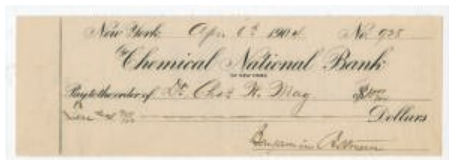 New York, Apr 6th 1904 No. 928
The Chemical National Bank
OF NEW YORK
Pay to the order of Dr. Chas H. May
Dollars
Benjamin Altman